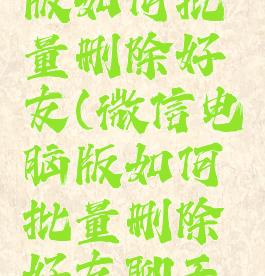 版如何批
量删除好
友(微信电
脑版如何
批量删除
好友聊天